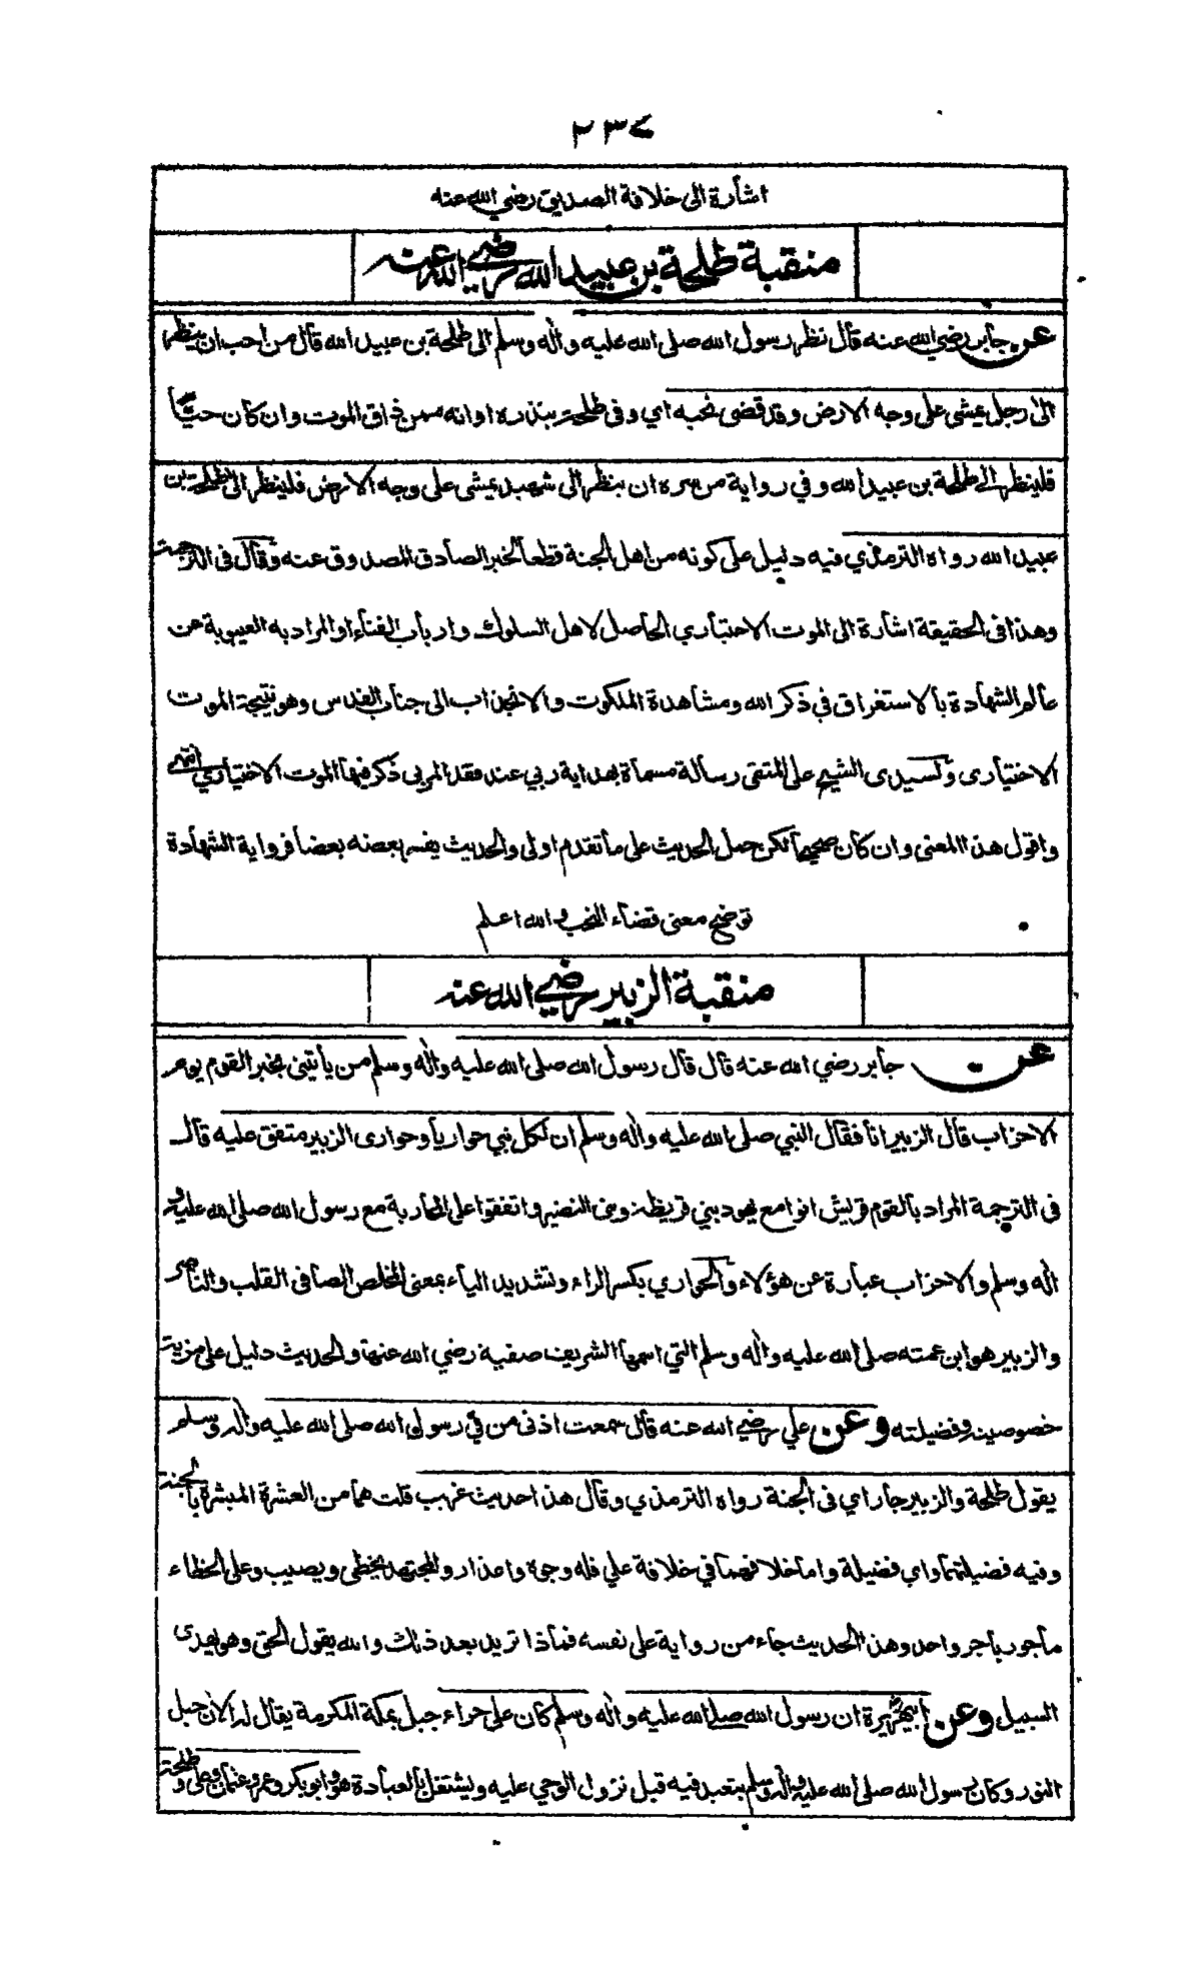 ٢٣٧
اشارة الى خلافة الصديق رضي الله عنه
منقبة طلحة بن عبيد الله رضي الله عنه
عن جابر رضي الله عنه قال نظر رسول الله صلى الله عليه واٰله وسلم الى طلحة بن عبيد الله قال من احب ان ينظر
الى رجل يمشى على وجه الارض وقد قضى نحبه اي وفى طلحة بنذره او انه ممن ذاق الموت وان كان حيًّا
فلينظر الى طلحة بن عبيد الله وفي رواية من سره ان ينظر الى شهيد يمشى على وجه الارض فلينظر الى طلحة بن
عبيد الله رواه الترمذي فيه دليل على كونه من اهل الجنة قطعا لخبر الصادق المصدوق عنه وقال فى الترجمة
وهذا فى الحقيقة اشارة الى الموت الاختياري الحاصل لاهل السلوك وارباب الفناء او المراد به الغيبوبة عن
عالم الشهادة بالاستغراق في ذكر الله ومشاهدة الملكوت والانجذاب الى جناب القدس وهو نتيجة الموت
الاختيارى ولسيدى الشيخ على المتقى رسالة مسماة بهداية ربي عند فقد المربى ذكر فيها الموت الاختياري انتهى
واقول هذا المعنى وان كان صحيحا لكن حمل الحديث على ما تقدم اولى والحديث يفسر بعضه بعضا فرواية الشهادة
توضح معنى قضاء النحب والله اعلم
منقبة الزبير رضي الله عنه
عن جابر رضي الله عنه قال قال رسول الله صلى الله عليه واٰله وسلم من يأتينى بخبر القوم يوم
الاحزاب قال الزبير انا فقال النبي صلى الله عليه واٰله وسلم ان لكل نبي حواريا وحوارى الزبير متفق عليه قال
فى الترجمة المراد بالقوم قريش اتوا مع يهود بني قريظة وبنى النضير واتفقوا على المحاربة مع رسول الله صلى الله عليه و
اٰله وسلم والاحزاب عبارة عن هؤلاء والحواري بكسر الراء وتشديد الياء بمعنى المخلص الصافى القلب والناصر
والزبير هو ابن عمته صلى الله عليه واٰله وسلم التي اسمها الشريف صفية رضي الله عنها والحديث دليل على مزية
خصوصيته وفضيلته وعن علي رضي الله عنه قال سمعت اذنى من في رسول الله صلى الله عليه واٰله وسلم
يقول طلحة والزبير جاراي فى الجنة رواه الترمذي وقال هذا حديث غريب قلت هما من العشرة المبشرة بالجنة
وفيه فضيلتهما واي فضيلة واما خلافهما في خلافة علي فله وجوه واعذار والمجتهد يخطى ويصيب وعلى الخطاء
مأجور باجر واحد وهذا الحديث جاء من رواية على نفسه فماذا تريد بعد ذلك والله يقول الحق وهو يهدى
السبيل وعن ابي هريرة ان رسول الله صلى الله عليه واٰله وسلم كان على حراء جبل بمكة المكرمة يقال له الآن جبل
النور وكان رسول الله صلى الله عليه واٰله وسلم يتعبد فيه قبل نزول الوحي عليه ويشتغل بالعبادة هو وابو بكر وعمر وعثمان وعلى و طلحة